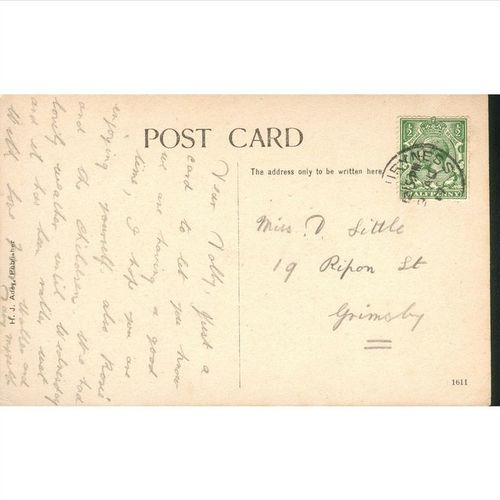 POST CARD
The address only to be written here.
Dear Dolly, Just a
card to let you know
we are having a good
time, I hope you are
enjoying yourself also Rose
and the Children. We had
lovely weather until Wednesday
and it has been rather wet
With love from Walter and
Miss. D. Little
19 Ripon St
Grimsby
HALFPENNY
H. J. Publisher
1611